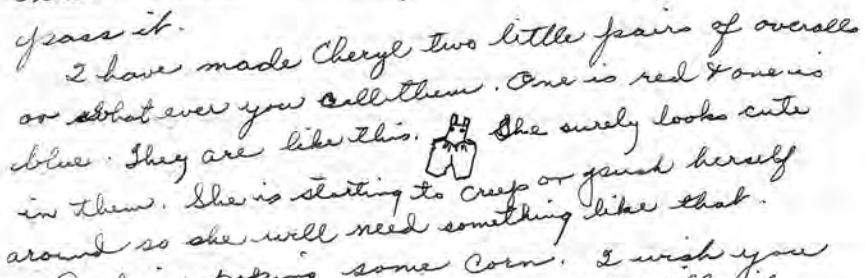 pass it.
I have made Cheryl two little pairs of overalls
or what ever you call them. One is red & one is
blue. They are like this. She surely looks cute
in them. She is starting to creep or push herself
around so she will need something like that.
some corn. I wish you